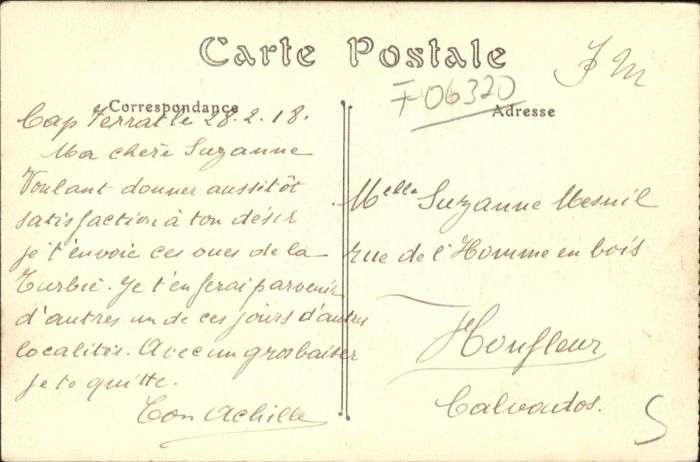 Carte Postale
F M
F 06320
Correspondance
Adresse
Cap Ferrat le 28.2.18.
Ma chère Suzanne
Voulant donner aussitôt
satisfaction à ton désir
je t'envoie ces vues de la
Turbie. Je t'en ferai parvenir
d'autres un de ces jours d'autres
localités. Avec un gros baiser
je te quitte.
Ton Achille
Melle Suzanne Mesnil
rue de l'Homme en bois
Honfleur
Calvados.
S